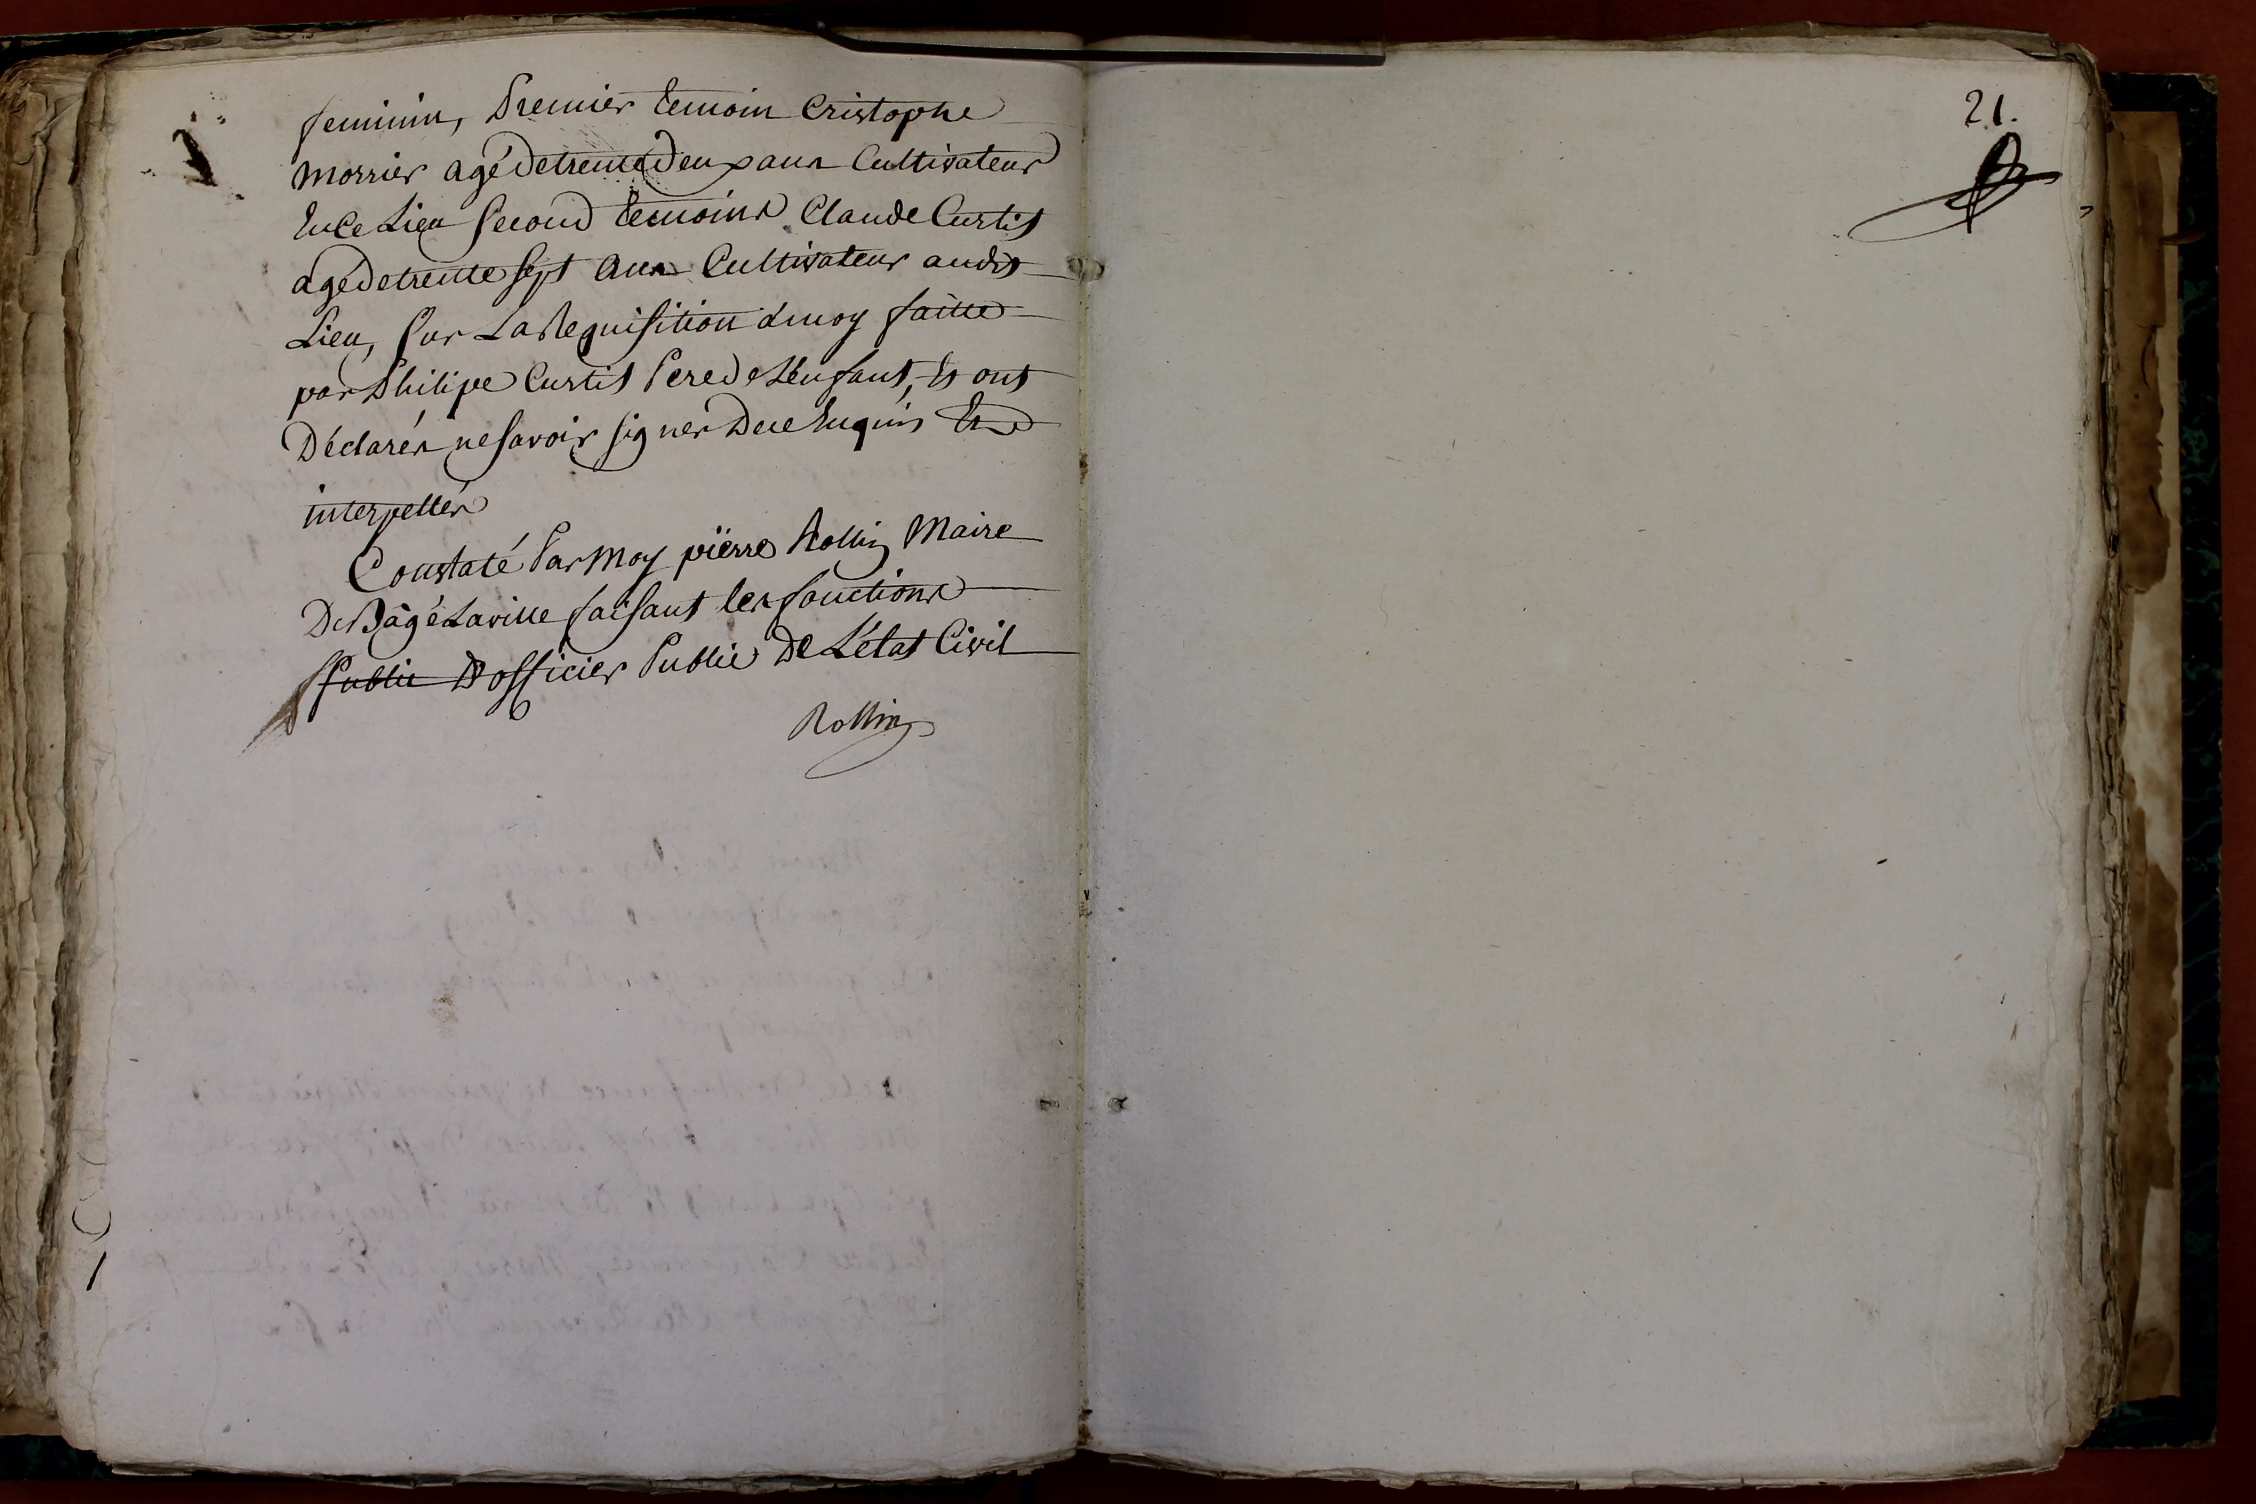 feminin, Premier temoin Cristophe
morrier agé de trente deux ans Cultivateur
En Ce Lieu Second temoins Claude Curtit
agé de trente Sept Ans Cultivateur audit
Lieu, Sur La Requisition a moy faitte
par Philipe Curtit Pere de L'enfant, Et ont
Déclarés ne Savoir signer De ce Enquis Et
interpellés
Constaté Par Moy pïerre Rollin Maire
De Bâgé Laville faisant les fonctions
Public D'officier Public De L'état Civil
Rollin
21.